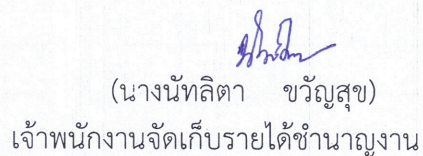 (นางนัทลิตา ขวัญสุข)
เจ้าพนักงานจัดเก็บรายได้ชำนาญงาน